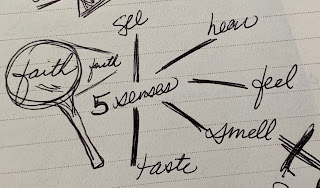 see
hear
faith
faith
5 senses
feel
smell
taste